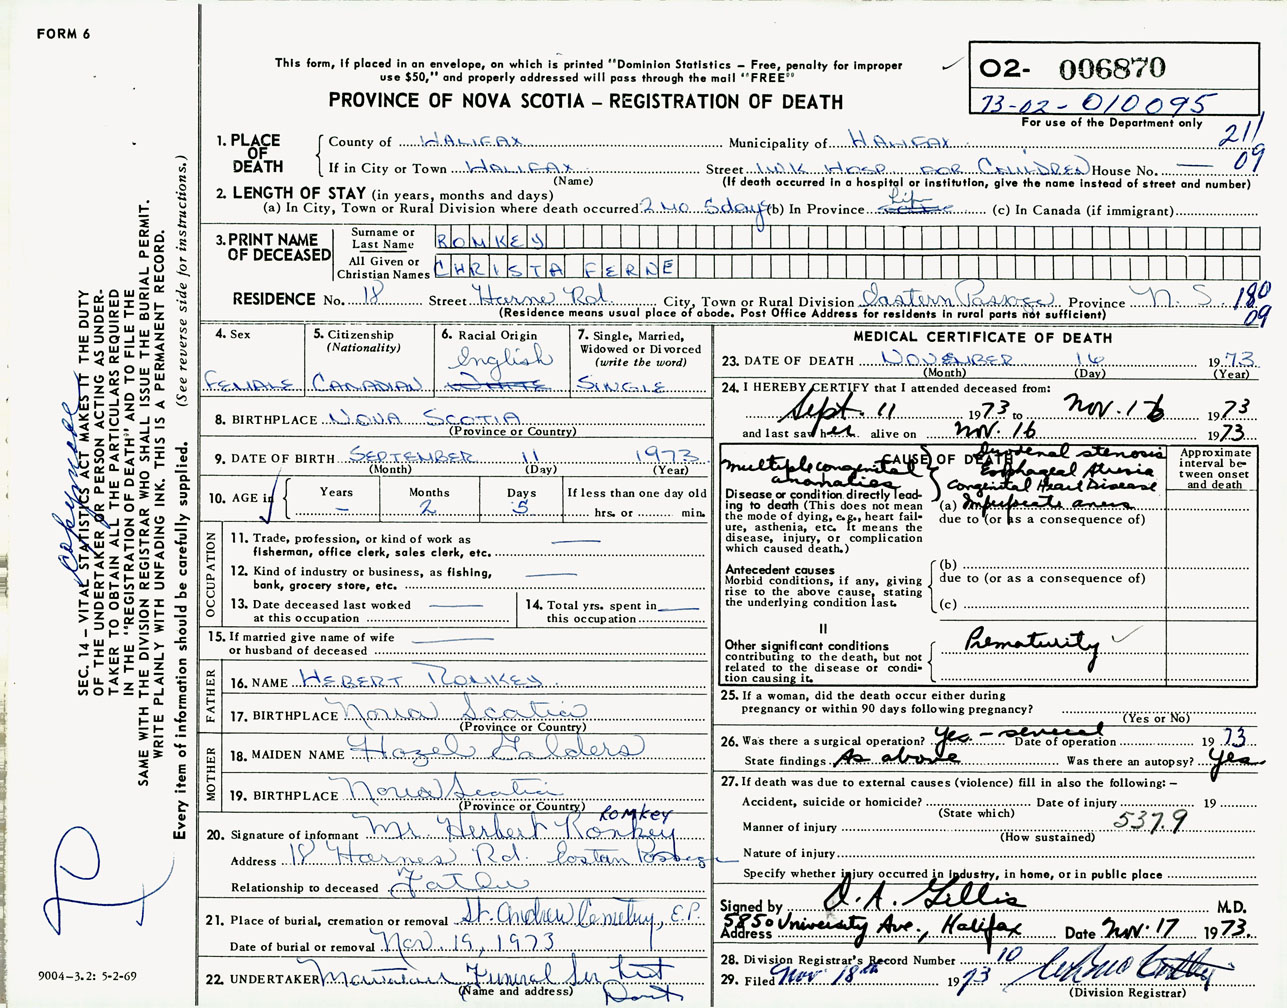 FORM 6
This form, if placed in an envelope, on which is printed "Dominion Statistics — Free, penalty for improper
use $50," and properly addressed will pass through the mail "FREE"
PROVINCE OF NOVA SCOTIA — REGISTRATION OF DEATH
02- 006870
73-02-010095
For use of the Department only
211
09
1. PLACE OF DEATH
County of HALIFAX Municipality of HALIFAX
If in City or Town HALIFAX Street IWK HOSP FOR CHILDREN House No. —
(Name) (If death occurred in a hospital or institution, give the name instead of street and number)
2. LENGTH OF STAY (in years, months and days)
(a) In City, Town or Rural Division where death occurred 2 mo 5 days (b) In Province Life (c) In Canada (if immigrant)
3. PRINT NAME OF DECEASED
Surname or Last Name ROMKEY
All Given or Christian Names CHRISTA FERNE
RESIDENCE No. 18 Street Harnes Rd. City, Town or Rural Division Eastern Passage Province N. S. 180
(Residence means usual place of abode. Post Office Address for residents in rural parts not sufficient) 09
4. Sex FEMALE
5. Citizenship (Nationality) CANADIAN
6. Racial Origin English
7. Single, Married, Widowed or Divorced (write the word) SINGLE
8. BIRTHPLACE NOVA SCOTIA
(Province or Country)
9. DATE OF BIRTH SEPTEMBER 11 1973
(Month) (Day) (Year)
10. AGE in Years Months Days If less than one day old
— 2 5 hrs. or min.
OCCUPATION
11. Trade, profession, or kind of work as
fisherman, office clerk, sales clerk, etc. —
12. Kind of industry or business, as fishing,
bank, grocery store, etc. —
13. Date deceased last worked at this occupation —
14. Total yrs. spent in this occupation —
15. If married give name of wife
or husband of deceased —
FATHER
16. NAME HEBERT ROMKEY
17. BIRTHPLACE Nova Scotia
(Province or Country)
MOTHER
18. MAIDEN NAME Hazel
19. BIRTHPLACE Nova Scotia
(Province or Country)
ROMKEY
20. Signature of informant Mr Herbert Romkey
Address 18 Harnes Rd. Eastern Passage
Relationship to deceased Father
21. Place of burial, cremation or removal St. Andrew Cemetery, E.P.
Date of burial or removal Nov 19, 1973
22. UNDERTAKER Funeral Ser Ltd
(Name and address) Dart
MEDICAL CERTIFICATE OF DEATH
23. DATE OF DEATH NOVEMBER 16 1973
(Month) (Day) (Year)
24. I HEREBY CERTIFY that I attended deceased from:
Sept. 11 1973 to Nov. 16 1973
and last saw her alive on Nov. 16 1973
CAUSE OF DEATH
Approximate interval between onset and death
Multiple congenital anomalies
Duodenal stenosis
Esophageal Atresia
Congenital Heart Disease
(a) Imperforate anus
Disease or condition directly lead-
ing to death (This does not mean
the mode of dying, e.g., heart fail-
ure, asthenia, etc. It means the
disease, injury, or complication
which caused death.)
due to (or as a consequence of)
Antecedent causes
Morbid conditions, if any, giving
rise to the above cause, stating
the underlying condition last.
(b)
due to (or as a consequence of)
(c)
II
Other significant conditions
contributing to the death, but not
related to the disease or condi-
tion causing it.
Prematurity
25. If a woman, did the death occur either during
pregnancy or within 90 days following pregnancy?
(Yes or No)
26. Was there a surgical operation? Yes - several Date of operation 19 73
State findings As above Was there an autopsy? Yes
27. If death was due to external causes (violence) fill in also the following:—
Accident, suicide or homicide? Date of injury 19
(State which)
Manner of injury 537.9
(How sustained)
Nature of injury
Specify whether injury occurred in industry, in home, or in public place
Signed by D. A. Gillis M.D.
Address 5850 University Ave., Halifax Date Nov. 17 1973.
28. Division Registrar's Record Number 10
29. Filed Nov 18th 1973
(Division Registrar)
SEC. 14 — VITAL STATISTICS ACT MAKES IT THE DUTY
OF THE UNDERTAKER OR PERSON ACTING AS UNDER-
TAKER TO OBTAIN ALL THE PARTICULARS REQUIRED
IN THE "REGISTRATION OF DEATH" AND TO FILE THE
SAME WITH THE DIVISION REGISTRAR WHO SHALL ISSUE THE BURIAL PERMIT.
WRITE PLAINLY WITH UNFADING INK. THIS IS A PERMANENT RECORD.
Every item of information should be carefully supplied. (See reverse side for instructions.)
9004-3.2: 5-2-69